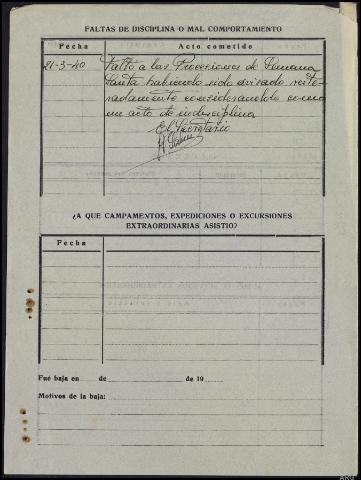 FALTAS DE DISCIPLINA O MAL COMPORTAMIENTO
Fecha Acto cometido
21-3-40 Falto a las Procesiones de Semana
Santa habiendo sido avisado reite-
radamente considerandolo como
un acto de indisciplina
El Secretario
¿A QUE CAMPAMENTOS, EXPEDICIONES O EXCURSIONES
EXTRAORDINARIAS ASISTIO?
Fecha
Fué baja en de de 19
Motivos de la baja: